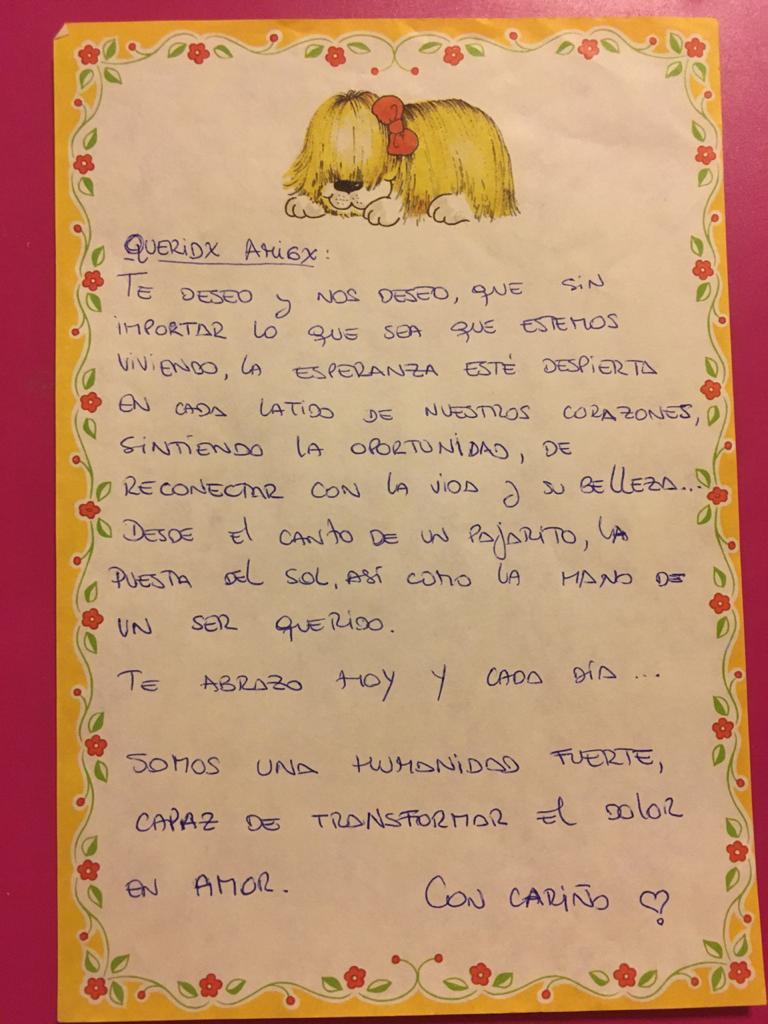 QUERIDX AMIGX:
TE DESEO Y NOS DESEO, QUE SIN
IMPORTAR LO QUE SEA QUE ESTEMOS
VIVIENDO, LA ESPERANZA ESTÉ DESPIERTA
EN CADA LATIDO DE NUESTROS CORAZONES,
SINTIENDO LA OPORTUNIDAD, DE
RECONECTAR CON LA VIDA Y SU BELLEZA...
DESDE EL CANTO DE UN PAJARITO, LA
PUESTA DEL SOL, ASÍ COMO LA MANO DE
UN SER QUERIDO.
TE ABRAZO HOY Y CADA DÍA ...
SOMOS UNA HUMANIDAD FUERTE,
CAPAZ DE TRANSFORMAR EL DOLOR
EN AMOR.
CON CARIÑO ♡